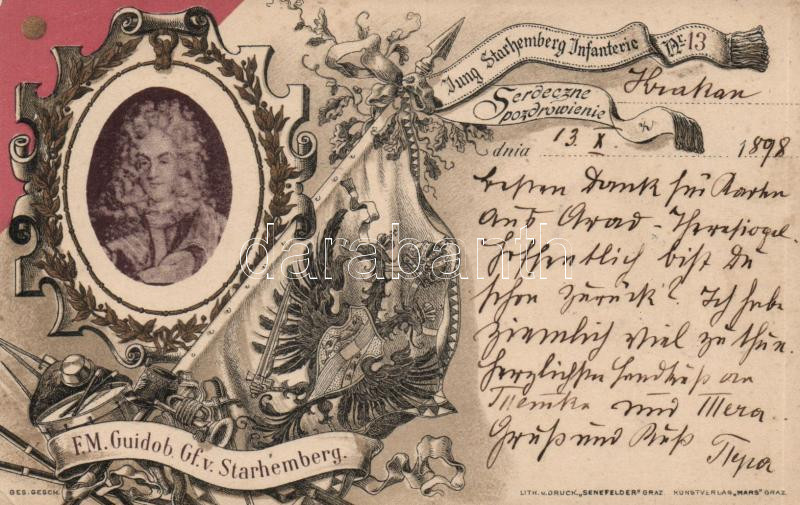 Jung Starhemberg Infanterie Nr. 13
Krakau
Serdeczne
pozdrowienie
dnia 13. X 1898
besten Dank für Karten
aus Arad - 
Hoffentlich bist Du
schon zurück? Ich habe
ziemlich viel zu thun.
Herzlichsten Handkuß an
und
Gruß und Kuß
F.M. Guidob. Gf. v. Starhemberg.
GES. GESCH.
LITH. U. DRUCK. „SENEFELDER" GRAZ. KUNSTVERLAG „MARS" GRAZ.
darabanth.com